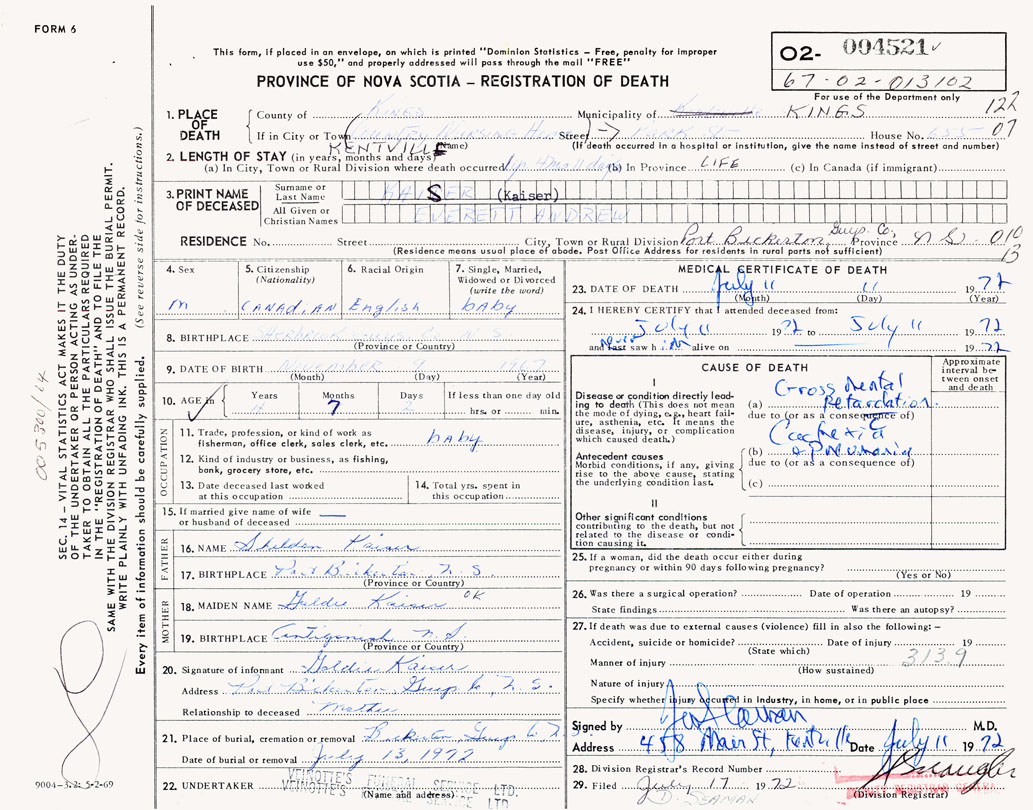 FORM 6
This form, if placed in an envelope, on which is printed "Dominion Statistics – Free, penalty for improper
use $50," and properly addressed will pass through the mail "FREE"
PROVINCE OF NOVA SCOTIA – REGISTRATION OF DEATH
O2- 004521
67-02-013102
For use of the Department only
122
07
1. PLACE OF DEATH
County of KINGS Municipality of KINGS
If in City or Town COUNTRY NURSING Street PARK ST House No. 655
KENTVILLE (Name) (If death occurred in a hospital or institution, give the name instead of street and number)
2. LENGTH OF STAY (in years, months and days)
(a) In City, Town or Rural Division where death occurred (b) In Province LIFE (c) In Canada (if immigrant)
3. PRINT NAME OF DECEASED
Surname or Last Name KAISER (Kaiser)
All Given or Christian Names EVERETT ANDREW
RESIDENCE No. Street City, Town or Rural Division Port Bickerton Guys. Co. Province N S. 010
13
(Residence means usual place of abode. Post Office Address for residents in rural parts not sufficient)
4. Sex
M
5. Citizenship (Nationality)
CANADIAN
6. Racial Origin
English
7. Single, Married, Widowed or Divorced (write the word)
baby
8. BIRTHPLACE N S
(Province or Country)
9. DATE OF BIRTH November 9 1967
(Month) (Day) (Year)
10. AGE in Years 4 Months 7 Days 2 If less than one day old
hrs. or min.
OCCUPATION
11. Trade, profession, or kind of work as
fisherman, office clerk, sales clerk, etc. baby
12. Kind of industry or business, as fishing,
bank, grocery store, etc.
13. Date deceased last worked
at this occupation
14. Total yrs. spent in
this occupation
15. If married give name of wife —
or husband of deceased
FATHER
16. NAME Sheldon Kaiser
17. BIRTHPLACE Port Bickerton, N. S.
(Province or Country)
MOTHER
18. MAIDEN NAME Goldie Kaiser OK
19. BIRTHPLACE Antigonish N. S.
(Province or Country)
20. Signature of informant Goldie Kaiser
Address Port Bickerton Guys Co, N. S.
Relationship to deceased Mother
21. Place of burial, cremation or removal Guys Co N.S.
Date of burial or removal July 13, 1972
22. UNDERTAKER VEINOTTE'S FUNERAL SERVICE LTD.
VEINOTTE'S SERVICE LTD
(Name and address)
MEDICAL CERTIFICATE OF DEATH
23. DATE OF DEATH July 11 11 1972
(Month) (Day) (Year)
24. I HEREBY CERTIFY that I attended deceased from:
July 11 1972 to July 11 1972
and last never saw h im alive on 1972
CAUSE OF DEATH
Approximate interval between onset and death
I
Disease or condition directly leading
to death (This does not mean
the mode of dying, e.g., heart failure,
asthenia, etc. It means the
disease, injury, or complication
which caused death.)
(a) Gross Mental
Retardation.
due to (or as a consequence of)
Antecedent causes
Morbid conditions, if any, giving
rise to the above cause, stating
the underlying condition last.
Cachexia
(b) & pneumonia
due to (or as a consequence of)
(c)
II
Other significant conditions
contributing to the death, but not
related to the disease or condition
causing it.
25. If a woman, did the death occur either during
pregnancy or within 90 days following pregnancy?
(Yes or No)
26. Was there a surgical operation? Date of operation 19
State findings Was there an autopsy?
27. If death was due to external causes (violence) fill in also the following:–
Accident, suicide or homicide? Date of injury 19
(State which) 313.9
Manner of injury
(How sustained)
Nature of injury
Specify whether injury occurred in industry, in home, or in public place
Signed by M.D.
Address 458 Main St, Kentville Date July 11 1972
28. Division Registrar's Record Number
29. Filed July 17 1972
D. SEAMAN
(Division Registrar)
SEC. 14 – VITAL STATISTICS ACT MAKES IT THE DUTY
OF THE UNDERTAKER OR PERSON ACTING AS UNDERTAKER
TO OBTAIN ALL THE PARTICULARS REQUIRED
IN THE "REGISTRATION OF DEATH" AND TO FILE THE
SAME WITH THE DIVISION REGISTRAR WHO SHALL ISSUE THE BURIAL PERMIT.
WRITE PLAINLY WITH UNFADING INK. THIS IS A PERMANENT RECORD.
Every item of information should be carefully supplied. (See reverse side for instructions.)